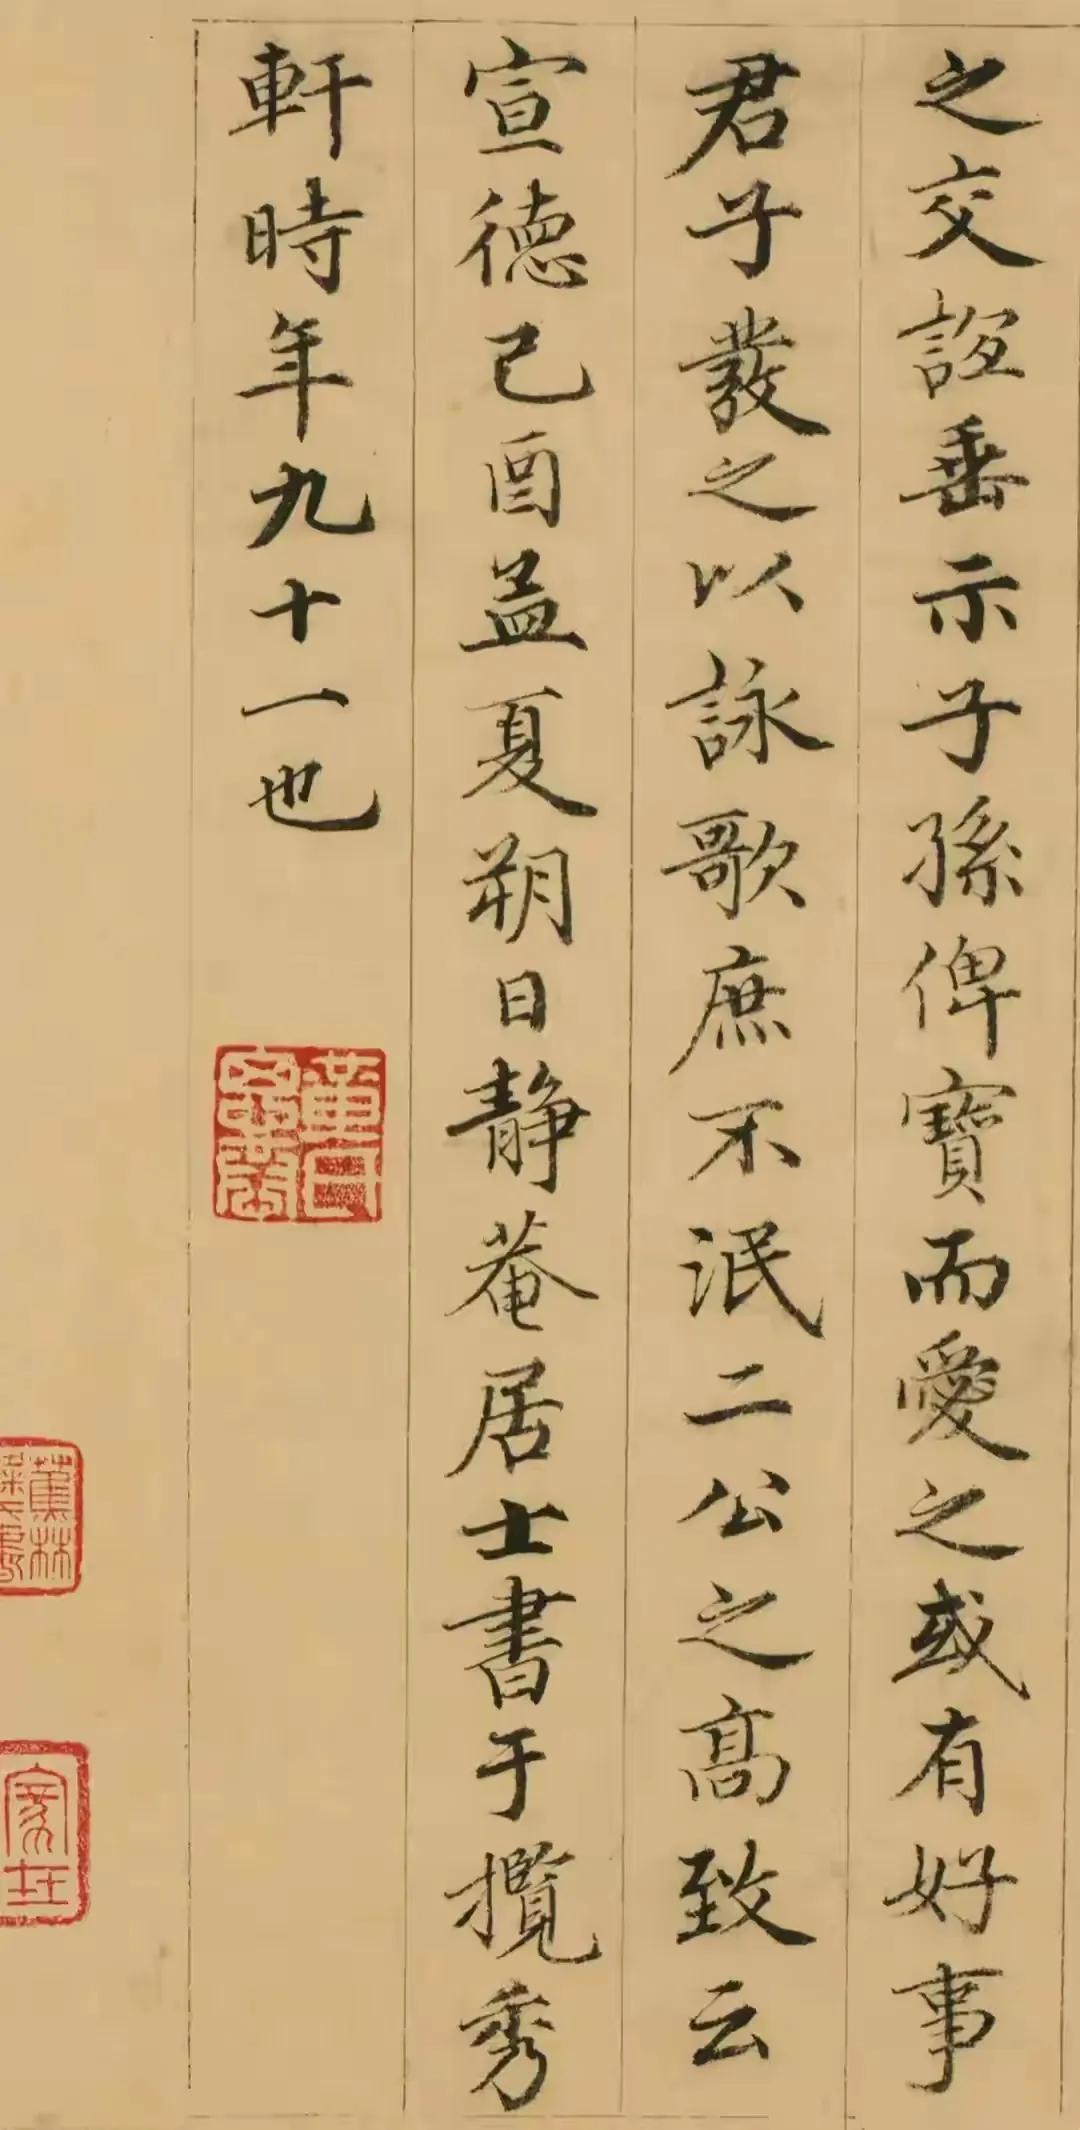 之交誼垂示子孫俾寶而愛之或有好事
君子發之以詠歌庶不泯二公之高致云
宣德己酉孟夏朔日靜菴居士書于攬秀
軒時年九十一也
蕉林
家在